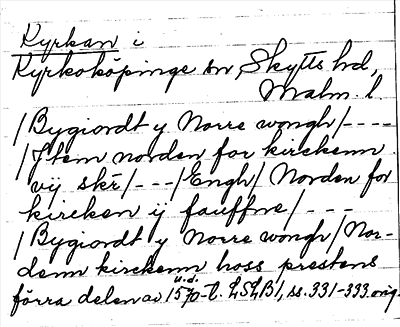 Kyrkan i
Kyrkoköpinge sn, Skytts hd,
Malm. l.
/Bygiordt y Norre wongh/----
/Jtem norden for kirckenn
vij skr/---/Engh/ Norden for
kircken ij fauffne/---
/Bygiordt y Norre wongh/Nor-
denn kirckenn hoss prestens
u.d.
förra delen av 15 -t. LSLB1, ss. 331-333. orig.